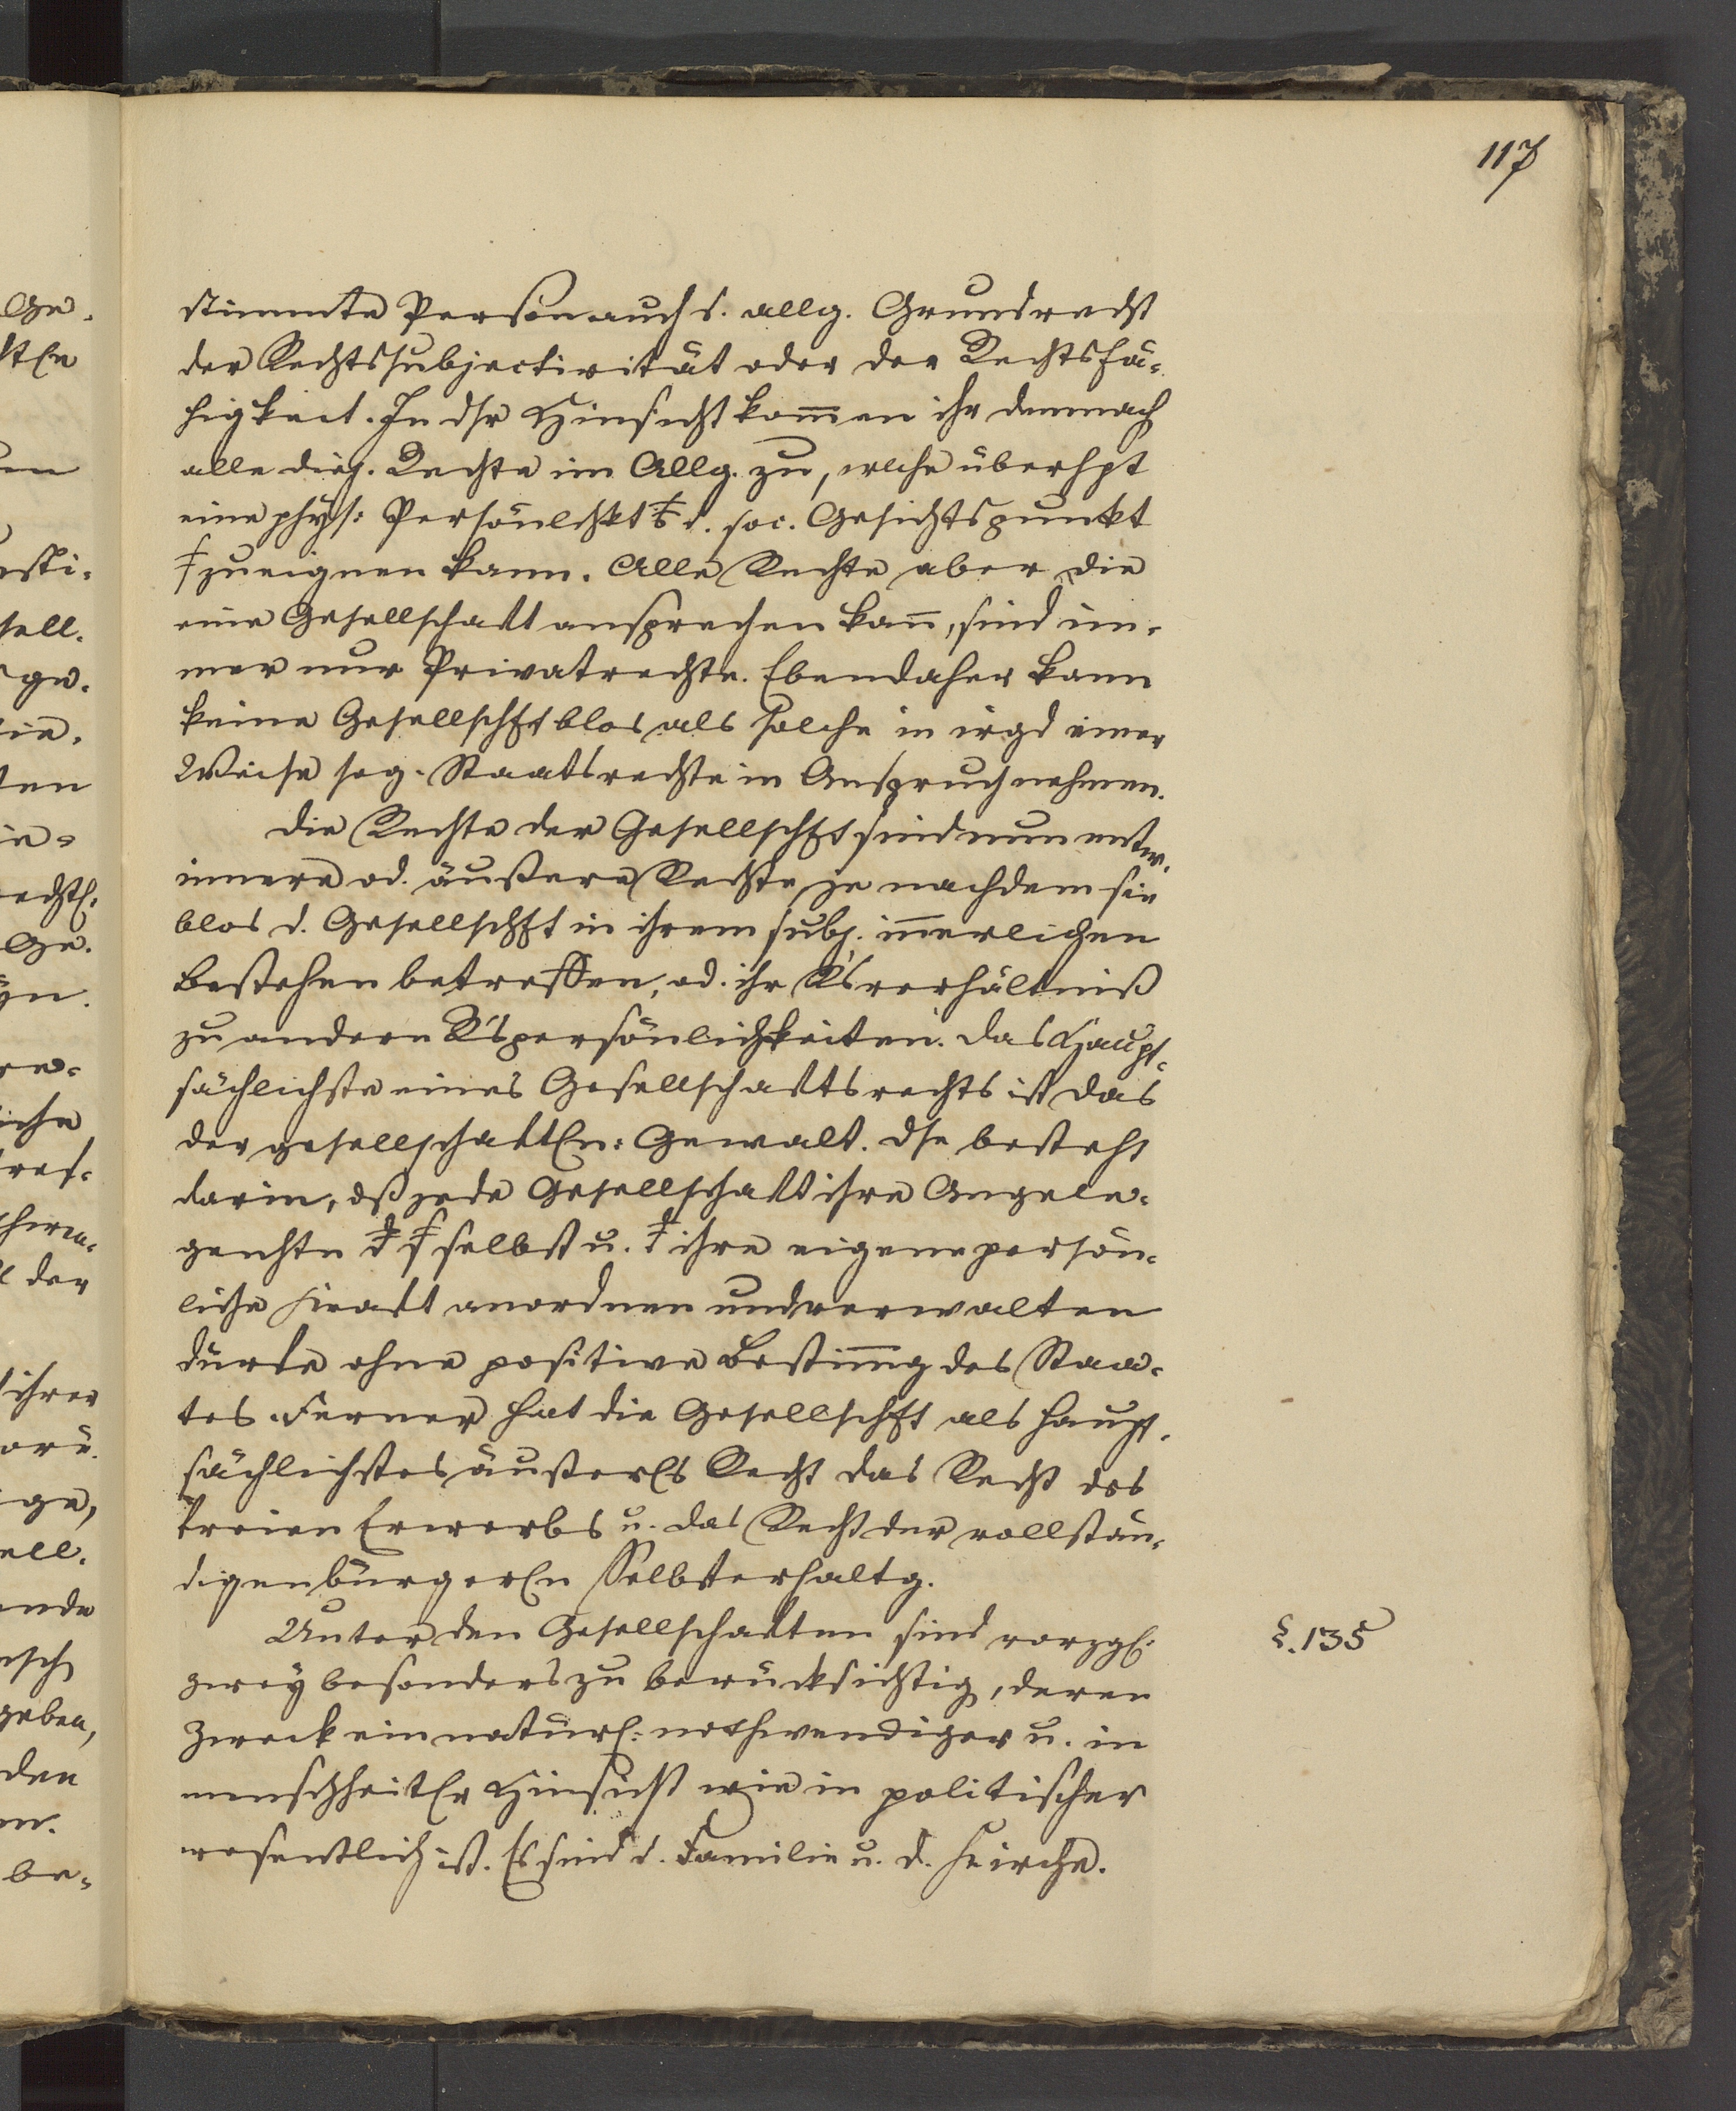 117
stimmte Person auch d. allg. Grundrecht
der Rechtssubjectivität oder der Rechtsfä-
higkeit. In dsr Hinsicht kom̅en ihr demnach
alle diej. Rechte im Allg. zu, wlche überhpt
eine phys: Persönlchkt d. soc. Gesichtspunkt
zueignen kann. Alle Rechte aber die
eine Gesellschaft ansprechen kan̅, sind im-
mer nur Privatrechte. Ebendaher kann
keine Gesellschft blos als solche in irgd einer
Weise sog. Staatsrechte in Anspruch nehmen.
Die Rechte der Gesellschft sind nun entw.
innere od. äußere Rechte je nachdem sie
blos d. Gesellschft in ihrem subj. in̅erlichen
Bestehen betreffen, od. ihr R's verhältniß
zu andern R'spersönlichkeiten. Das Haupt-
sächlichste eines Gesellschaftsrechts ist das
der gesellschaftln: Gewalt. Dse besteht
darin, dß jede Gesellschaft ihre Angele-
genhtn selbst u. ihre eigene persön-
liche Kraft anordnen und verwalten
dürfe ohne positive Bestim̅g des Staa-
tes. Ferner hat die Gesellschft als haupt-
sächlichstes äußerls Recht das Recht des
freien Erwerbs u. das Recht der vollstän-
digen bürgerln Selbsterhaltg.
Unter den Gesellschaften sind vorzgl: §. 135
zwey besonders zu berücksichtig, deren
Zweck ein natürl: nothwendiger u. in
menschheitlr Hinsicht wie in politischer
wesentlich ist. Es sind d. Familie u. d. Kirche.